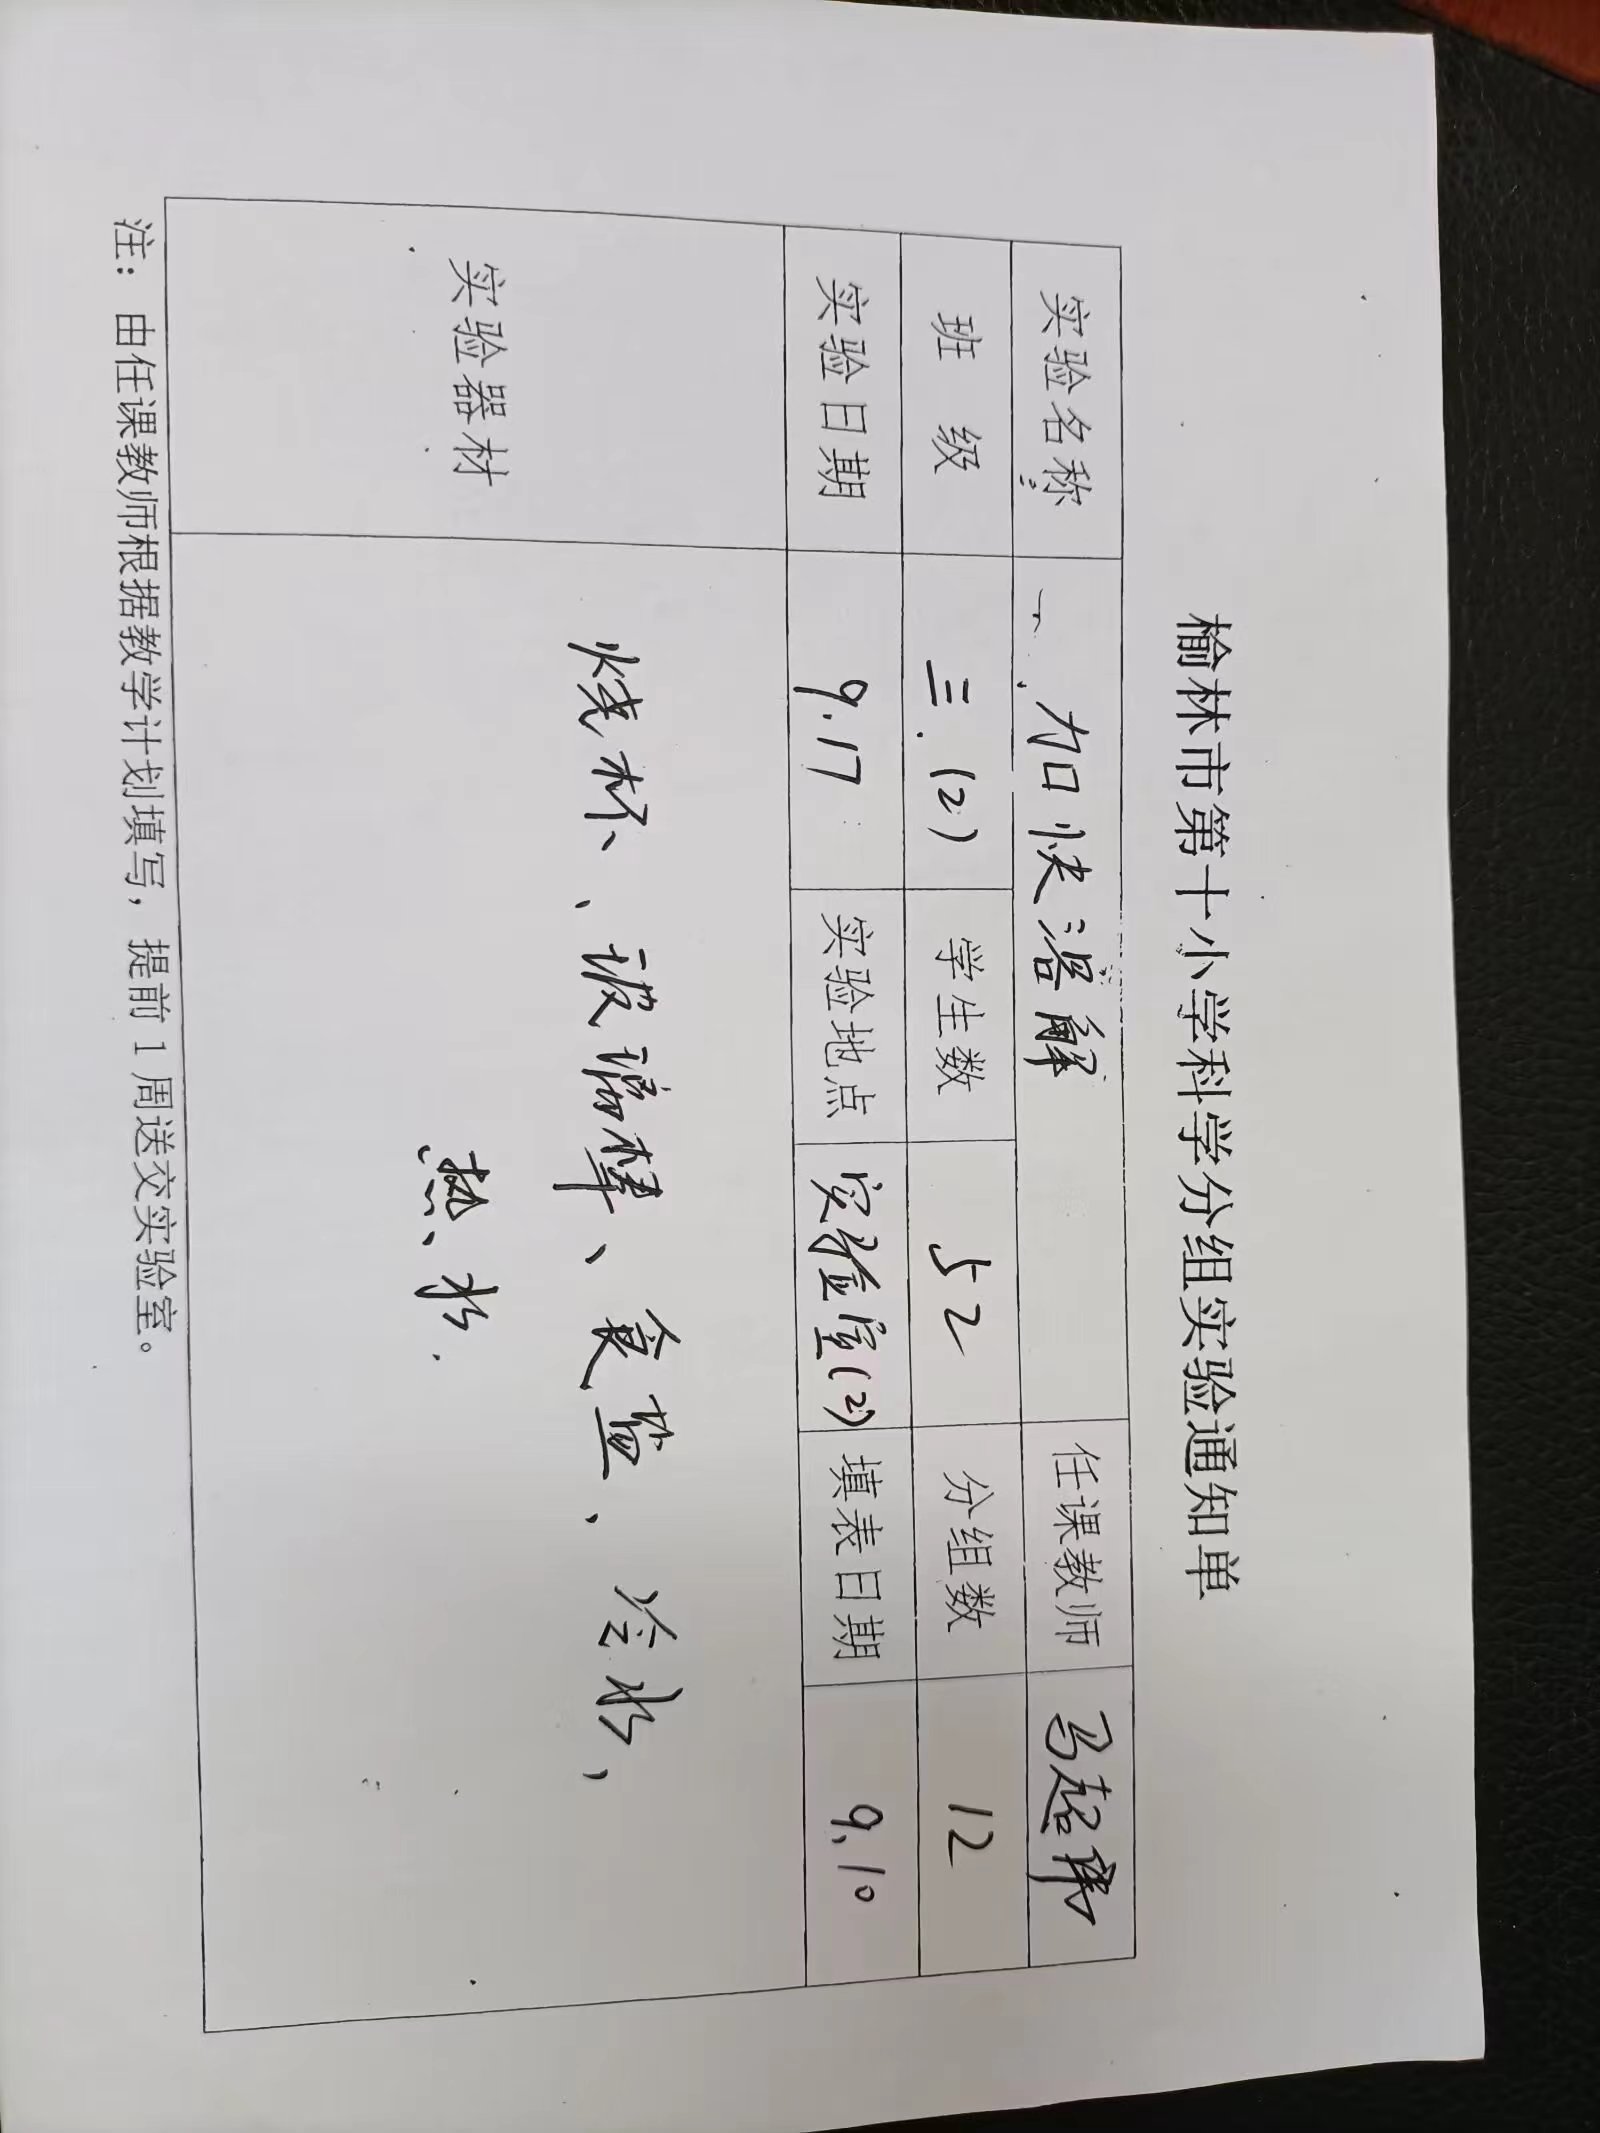 榆林市第十小学科学分组实验通知单
实验名称 加快溶解 任课教师 马超
班 级 三.(2) 学生数 52 分组数 12
实验日期 9.17 实验地点 实验室(2) 填表日期 9.10
实验器材 烧杯、玻璃棒、食盐、冷水、
热水.
注：由任课教师根据教学计划填写，提前1周送交实验室。